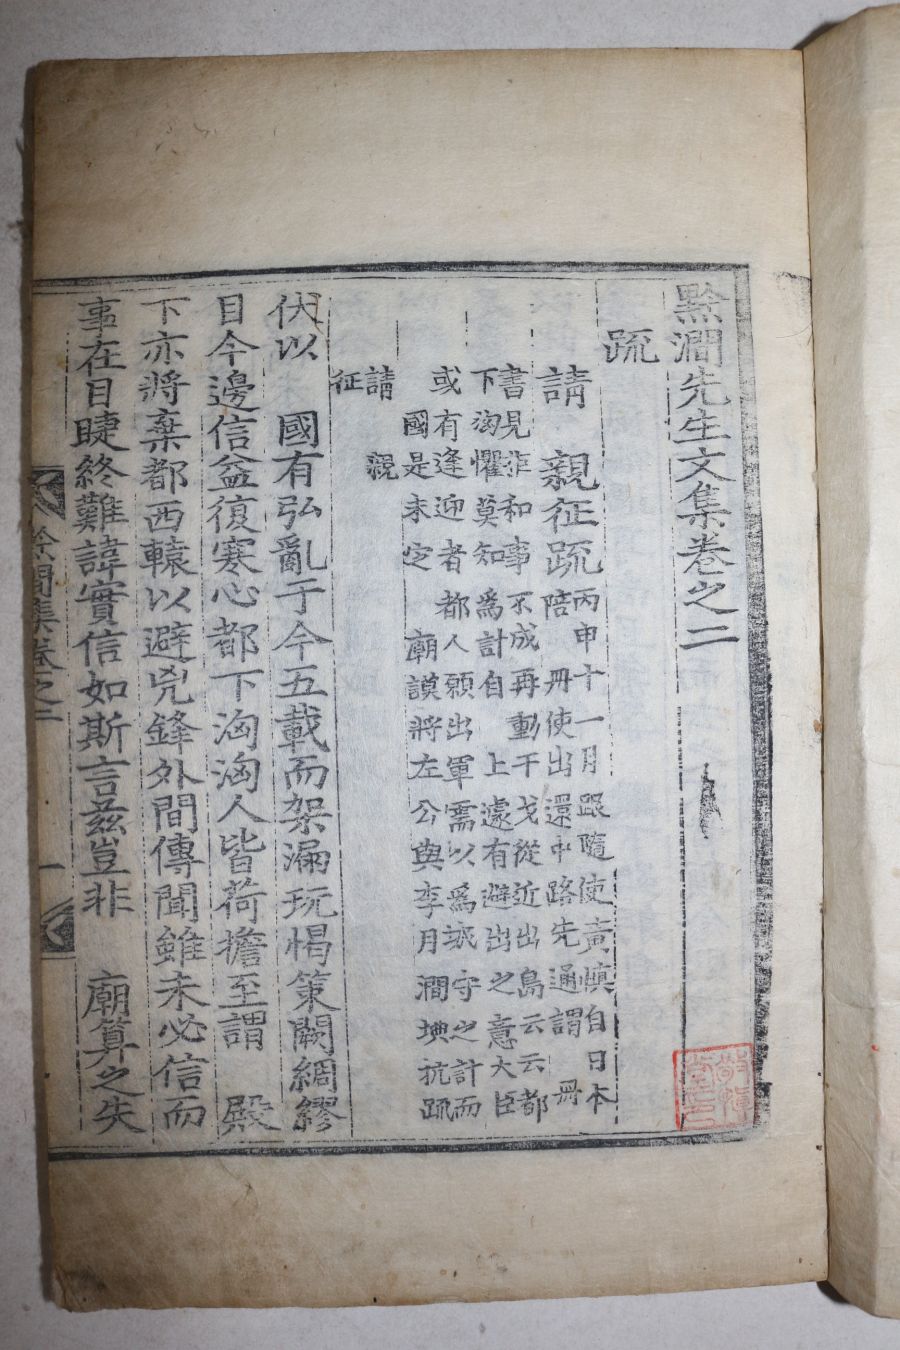 黔澗先生文集卷之二
疏
請 親征疏
丙申十一月跟隨使黃愼自日本
陪 冊使出還中路先通謂 冊
書見非和事不成再動干戈從近出島云云都
下洶懼莫知爲計自 上遽有避出之意大臣
或有逢迎者都人願出軍需以爲城守之計而
國是未定 廟謨將左公與李月澗㙉抗疏
請 親
征
伏以 國有弘亂于今五載而架漏玩愒策闕綢繆
目今邊信益復寒心都下洶洶人皆荷擔至謂 殿
下亦將棄都西轅以避兇鋒外間傳聞雖未必信而
事在目睫終難諱實信如斯言玆豈非 廟算之失
黔澗集卷之二 一